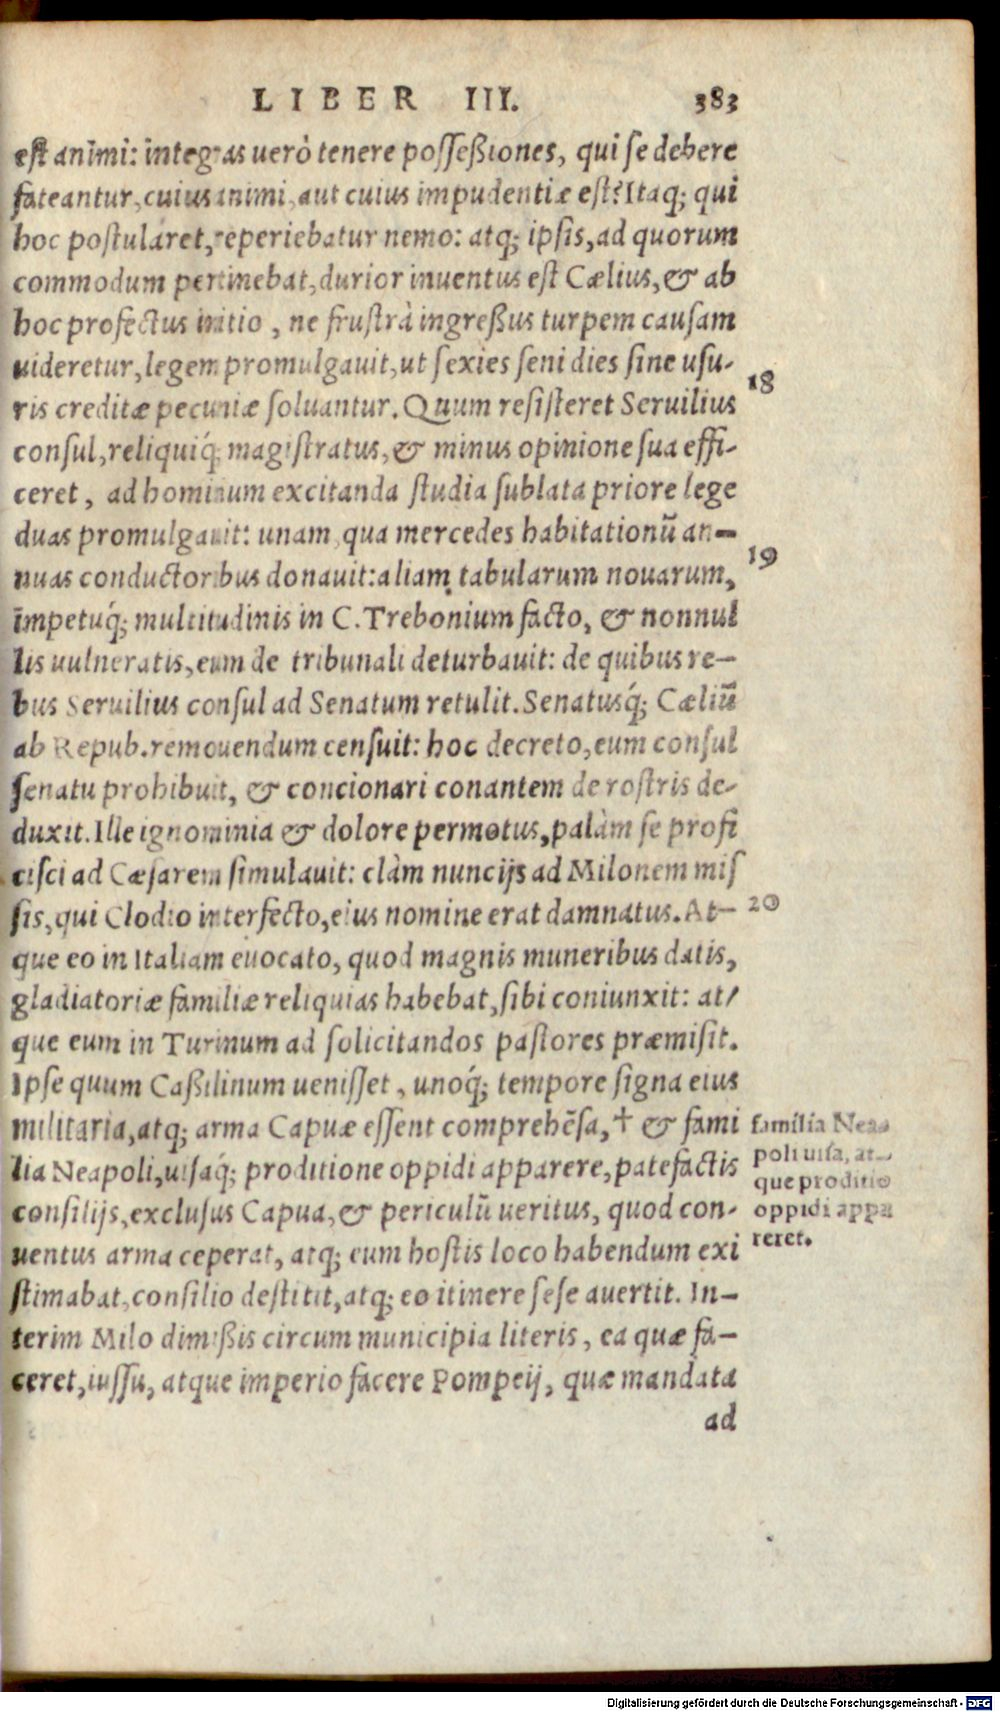 LIBER III. 383
est animi: integras uerò tenere posseßiones, qui se debere
fateantur, cuius animi, aut cuius impudentiæ est? Itaq; qui
hoc postularet, reperiebatur nemo: atq; ipsis, ad quorum
commodum pertinebat, durior inuentus est Cælius, & ab
hoc profectus initio, ne frustrà ingreßus turpem causam
uideretur, legem promulgauit, ut sexies seni dies sine usu-
18
ris creditæ pecuniæ soluantur. Quum resisteret Seruilius
consul, reliquiq́; magistratus, & minus opinione sua effi-
ceret, ad hominum excitanda studia sublata priore lege
duas promulgauit: unam, qua mercedes habitationũ an-
19
nuas conductoribus donauit: aliam tabularum nouarum,
impetuq́; multitudinis in C. Trebonium facto, & nonnul
lis uulneratis, eum de tribunali deturbauit: de quibus re-
bus Seruilius consul ad Senatum retulit. Senatusq́; Cæliũ
ab Repub. remouendum censuit: hoc decreto, eum consul
senatu prohibuit, & concionari conantem de rostris de-
duxit. Ille ignominia & dolore permotus, palàm se profi
cisci ad Cæsarem simulauit: clàm nuncijs ad Milonem mis
sis, qui Clodio interfecto, eius nomine erat damnatus. At-
20
que eo in Italiam euocato, quod magnis muneribus datis,
gladiatoriæ familiæ reliquias habebat, sibi coniunxit: at-
que eum in Turinum ad solicitandos pastores præmisit.
Ipse quum Caßilinum uenisset, unoq́; tempore signa eius
militaria, atq; arma Capuæ essent comprehẽsa, † & fami
lia Neapoli, uisaq́; proditione oppidi apparere, patefactis
consilijs, exclusus Capua, & periculũ ueritus, quod con-
uentus arma ceperat, atq; eum hostis loco habendum exi
stimabat, consilio destitit, atq; eo itinere sese auertit. In-
terim Milo dimißis circum municipia literis, ea quæ fa-
ceret, iussu, atque imperio facere Pompeij, quæ mandata
ad
familia Nea-
poli uisa, at-
que proditio
oppidi appa
reret.
Digitalisierung gefördert durch die Deutsche Forschungsgemeinschaft - DFG